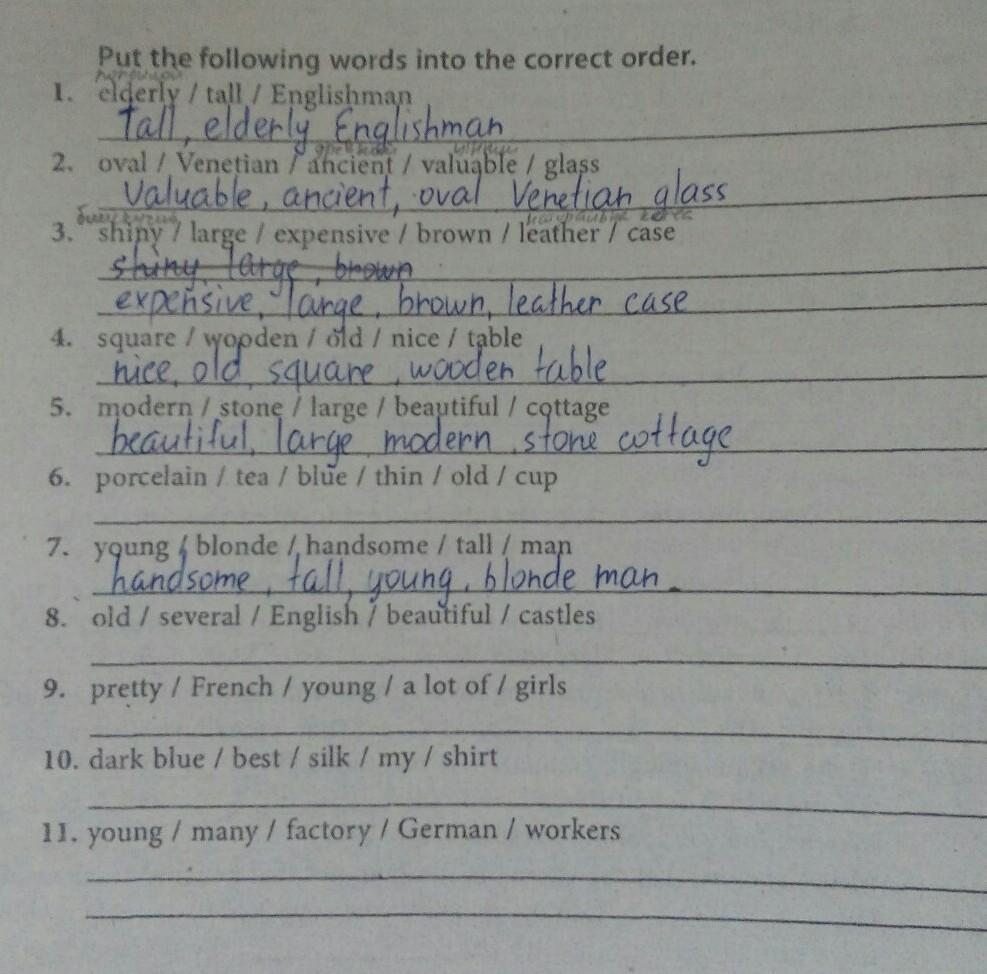 Put the following words into the correct order.
1. elderly / tall / Englishman
Tall, elderly Englishman
2. oval / Venetian / ancient / valuable / glass
Valuable, ancient, oval Venetian glass
3. shiny / large / expensive / brown / leather / case
shiny large, brown
expensive, large, brown, leather case
4. square / wooden / old / nice / table
nice, old square, wooden table
5. modern / stone / large / beautiful / cottage
beautiful, large modern, stone cottage
6. porcelain / tea / blue / thin / old / cup
7. young / blonde / handsome / tall / man
handsome, tall, young, blonde man.
8. old / several / English / beautiful / castles
9. pretty / French / young / a lot of / girls
10. dark blue / best / silk / my / shirt
11. young / many / factory / German / workers